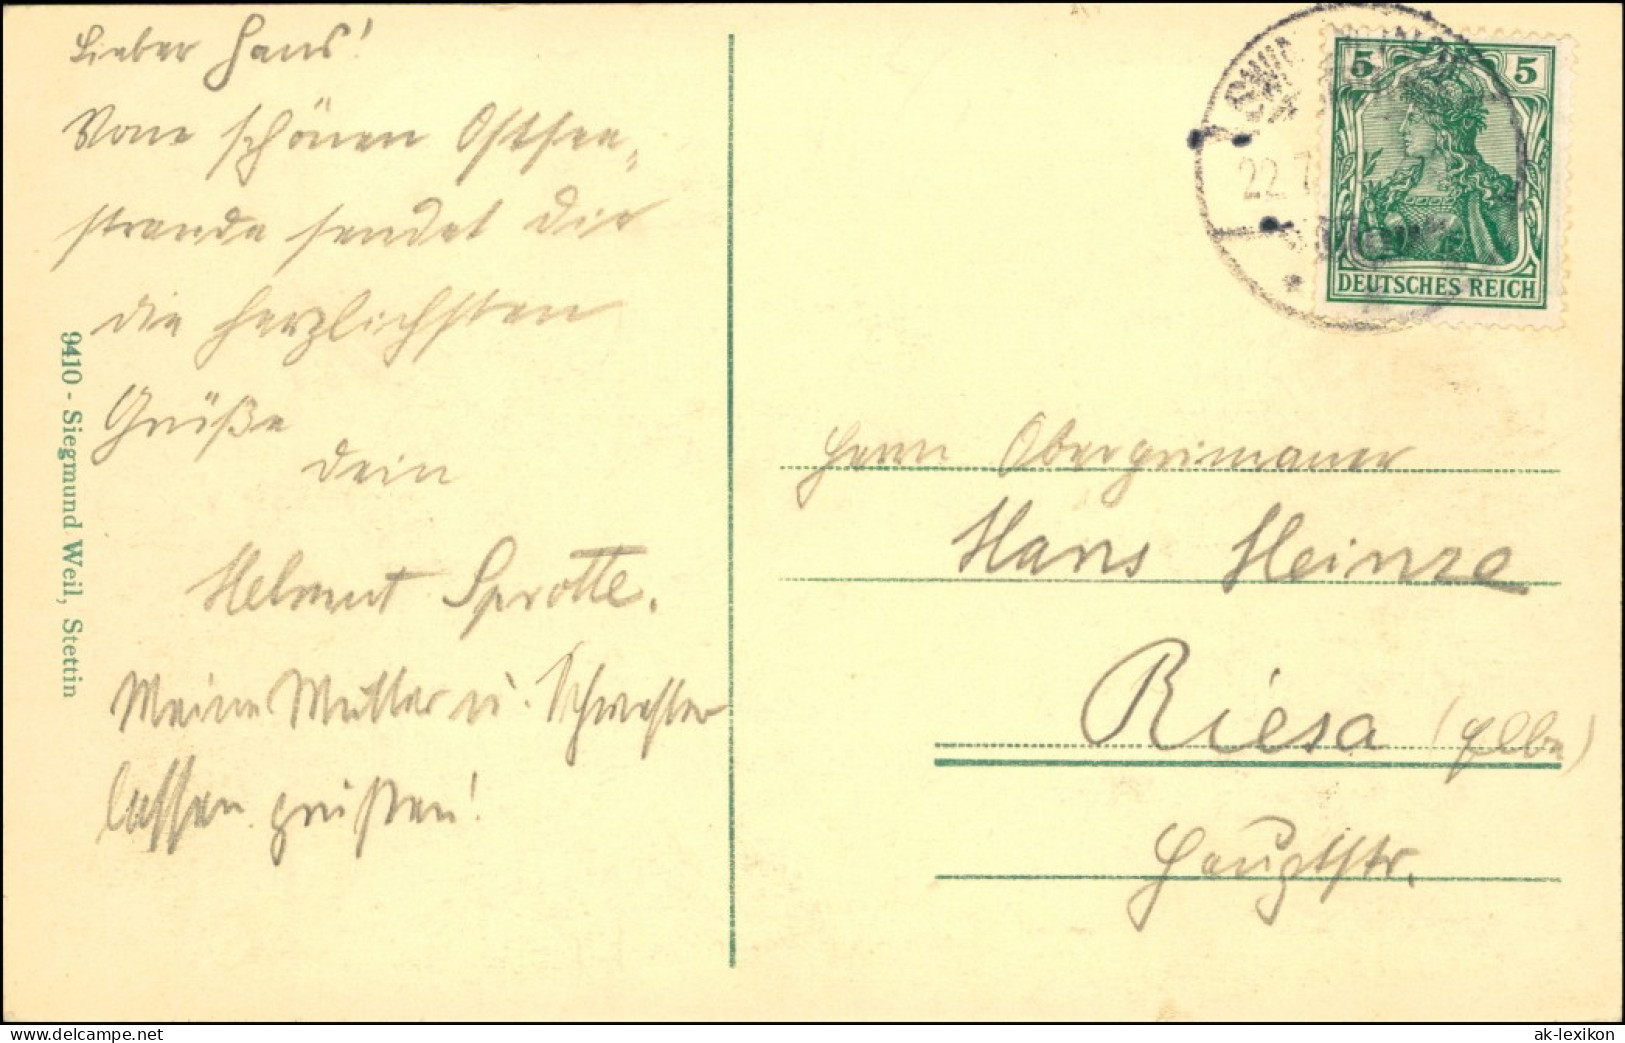 Lieber Hans!
Vom schönen Ostsee-
strande sendet Dir
die herzlichsten
Grüße
Dein
Helmut Sprotte.
Meine Mutter u. Schwester
lassen grüßen!
9410 - Siegmund Weil, Stettin
22.7
5 5
DEUTSCHES REICH
Herrn Oberprimaner
Hans Heinze
Riesa (Elbe)
Hauptstr.
www.delcampe.net
ak-lexikon